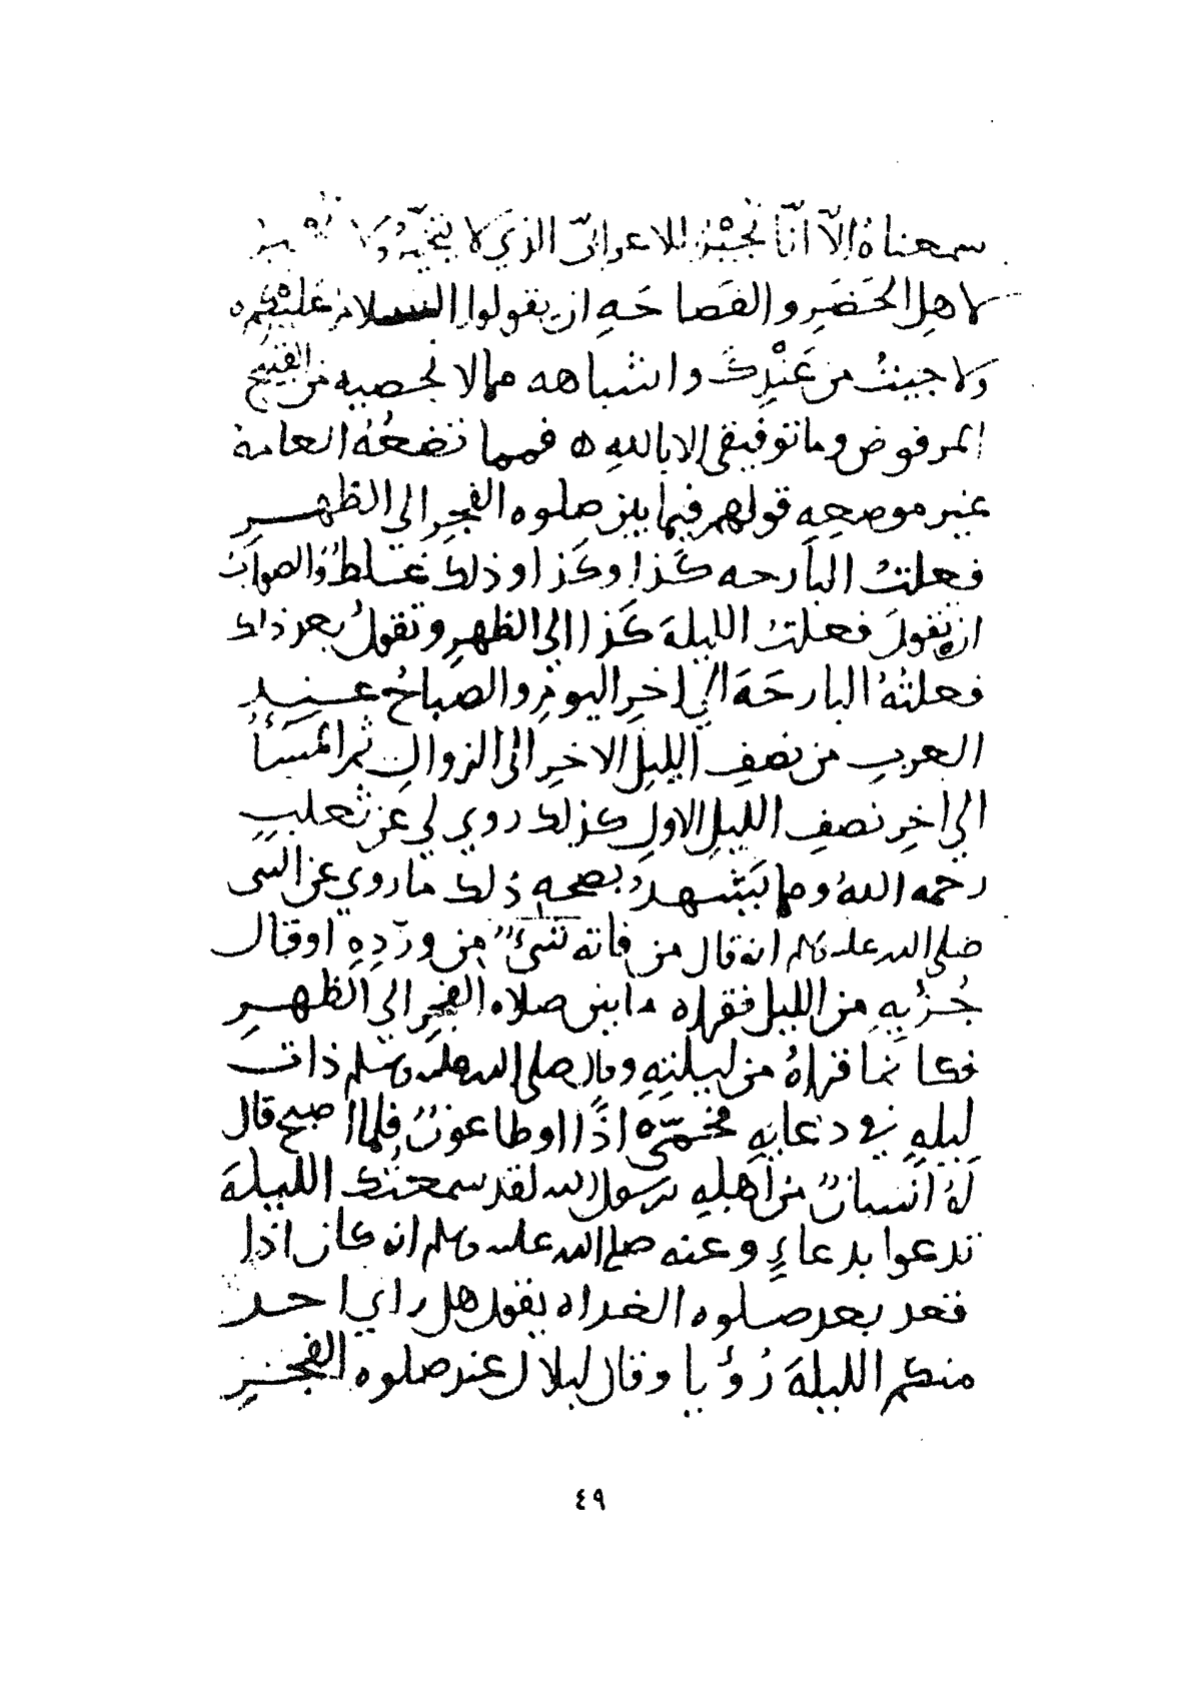 سمعناهُ إلّا أنّا نُجيْزُ للاعرابيّ الذي لا يتخيّر ولا
لاهل الحَضَرِ والفَصاحَهِ ان يقولوا السلامُ عَليْكم
ولا جيتُ من عَنْدِكَ واشباهه مما لا نحصيه من القبيح
المرفوض وما توفيقي الا بالله ه فمما تضعُهُ العامة
غير موضعِهِ قولهم فيما بين صلوه الفجرِ الي الظهر
فعلتُ البارحه كَذا وكَذا وذلك غلطٌ والصوابُ
ان يقولَ فعلتُ الليلةَ كَذا الي الظهرِ وتقولُ بعد ذلك
فعلتُهُ البارحَهَ الي اخرِ اليومِ والصباحُ عند
العربِ من نصفِ الليلِ الاخرِ الي الزوالِ ثم المَسَأُ
الي اخرِ نصفِ الليلِ الاولِ كذلك روي لي عن ثعلبٍ
رحمه اللهُ ومما يَشهدُ بصحهِ ذلك ما روي عن النبي
صلى الله عليه وسلم انه قال من فاته شيءٌ من وِردِهِ او قال
جُزْيِهِ من الليل فقراه ما بين صلاه الفجرِ الي الظهرِ
فكانما قراهُ من ليلتِهِ وقال صلى الله عليه وسلم ذات
ليلهِ في دعايهِ فحُمّى اذًا او طاعونٌ فلما اصبح قال
لَهُ انسانٌ من اهلِهِ يرسول الله لقد سمعتُك الليلةَ
تدعوا بدعاءٍ وعنه صلى الله عليه وسلم انه كان اذا
قعد بعد صلوه الغداه يقول هل راي احد
منكم الليلةَ رُؤيا وقال لبلال عند صلوه الفجرِ
٤٩